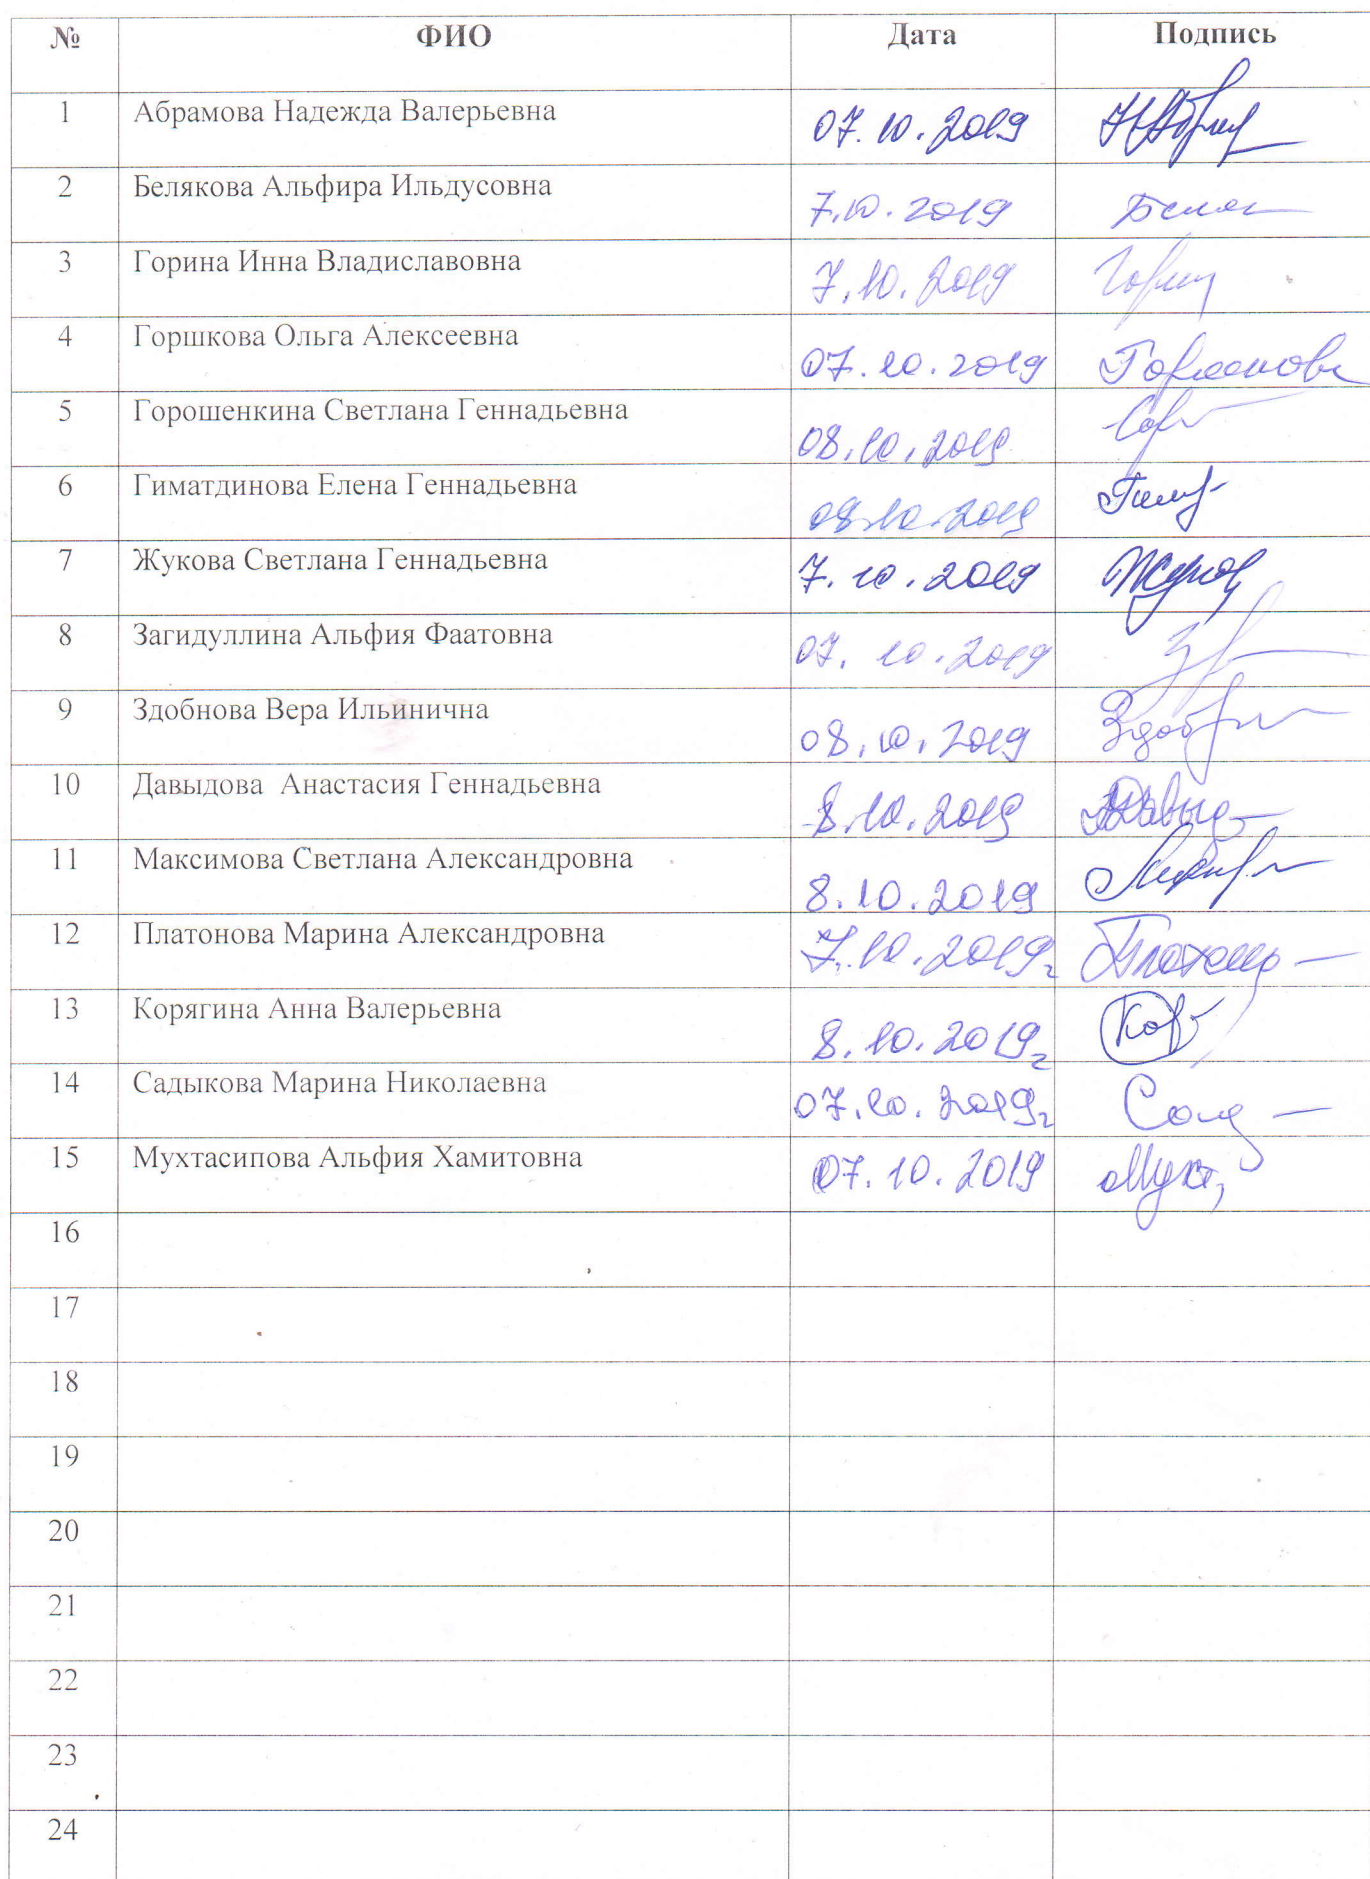 № ФИО Дата Подпись
1 Абрамова Надежда Валерьевна 07.10.2019
2 Белякова Альфира Ильдусовна 7.10.2019
3 Горина Инна Владиславовна 7.10.2019
4 Горшкова Ольга Алексеевна 07.10.2019
5 Горошенкина Светлана Геннадьевна 08.10.2019
6 Гиматдинова Елена Геннадьевна 08.10.2019
7 Жукова Светлана Геннадьевна 7.10.2019
8 Загидуллина Альфия Фаатовна 07.10.2019
9 Здобнова Вера Ильинична 08.10.2019
10 Давыдова Анастасия Геннадьевна 8.10.2019
11 Максимова Светлана Александровна 8.10.2019
12 Платонова Марина Александровна 7.10.2019г
13 Корягина Анна Валерьевна 8.10.2019г
14 Садыкова Марина Николаевна 07.10.2019г
15 Мухтасипова Альфия Хамитовна 07.10.2019
16
17
18
19
20
21
22
23
24